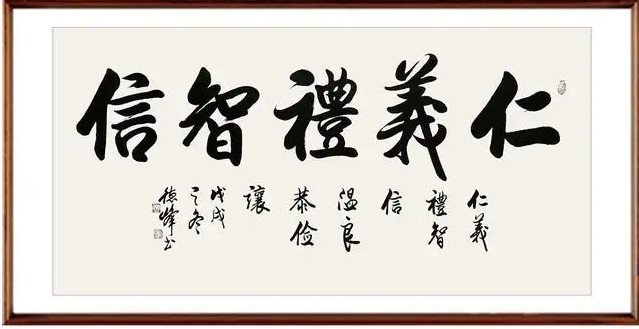 仁義禮智信
仁義
禮智
信
温良
恭俭
讓
戊戌
之冬
德峰书